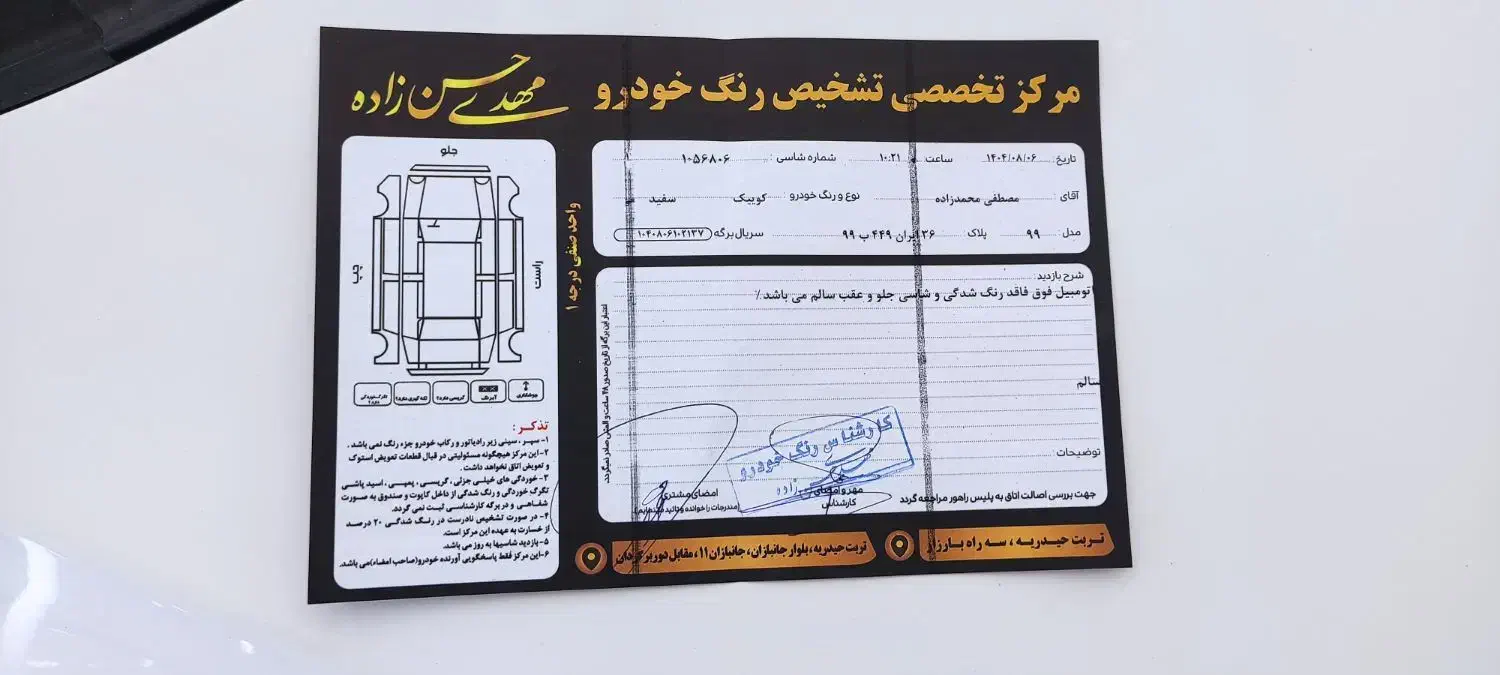 مرکز تخصصی تشخیص رنگ خودرو
مهدی حسن زاده
تاریخ: ۱۴۰۴/۰۸/۰۶ ساعت ۱۰:۲۱ شماره شاسی: ۱۰۵۶۸۰۶
آقای: مصطفی محمدزاده نوع و رنگ خودرو: کوییک سفید
مدل: ۹۹ پلاک ۳۶ ایران ۴۴۹ ب ۹۹ سریال برگه ۱۰۴۰۸۰۶۱۰۲۱۳۷
شرح بازدید:
تومبیل فوق فاقد رنگ شدگی و شاسی جلو و عقب سالم می باشد٪
سالم
توضیحات:
جهت بررسی اصالت اتاق به پلیس راهور مراجعه گردد
مهر و امضای
کارشناس
امضای مشتری
کارشناس رنگ خودرو
اعتبار این برگه از تاریخ صدور ۴۸ ساعت و المثنی صادر نمیگردد
واحد صنفی درجه ۱
جلو
چپ
راست
جوشکاری
آبرنگ
گریسی دارد؟
لکه گیری دارد؟
تذکر:
۱- سپر، سینی زیر رادیاتور و رکاب خودرو جزء رنگ نمی باشد.
۲- این مرکز هیچگونه مسئولیتی در قبال قطعات تعویض استوک
و تعویض اتاق نخواهد داشت.
۳- خوردگی های خیلی جزئی، گریسی، پمپی، اسید پاشی
تگرگ خوردگی و رنگ شدگی از داخل کاپوت و صندوق به صورت
شفاهی و در برگه کارشناسی ثبت نمی گردد.
۴- در صورت تشخیص نادرست در رنگ شدگی ۲۰ درصد
از خسارت به عهده این مرکز است.
۵- بازدید شاسیها به روز می باشد.
۶- این مرکز فقط پاسخگویی آورنده خودرو(صاحب امضاء)می باشد.
تربت حیدریه، سه راه بارزار
تربت حیدریه، بلوار جانبازان، جانبازان ۱۱، مقابل دوربرگردان